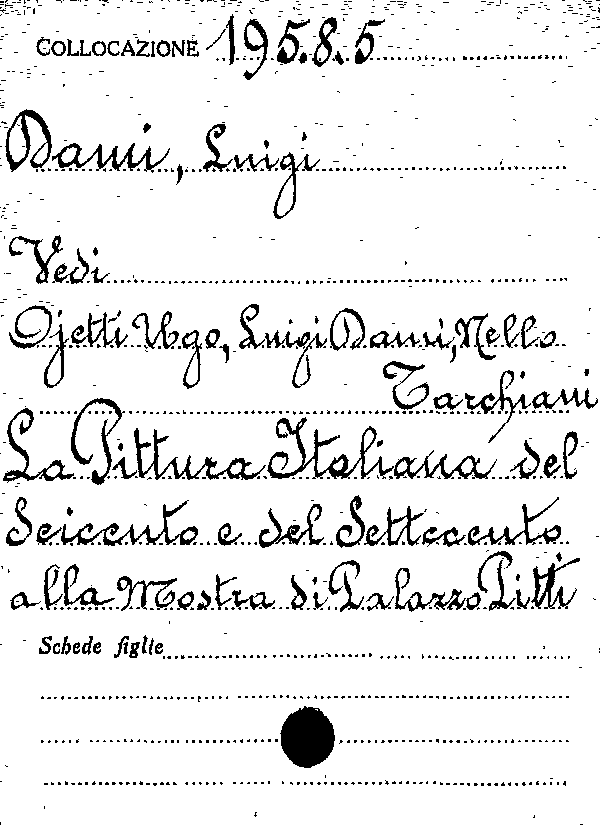 COLLOCAZIONE 195.8.5
Dami, Luigi
Vedi
Ojetti Ugo, Luigi Dami, Nello
Tarchiani
La Pittura Italiana del
Seicento e del Settecento
alla Mostra di Palazzo Pitti
Schede figlie